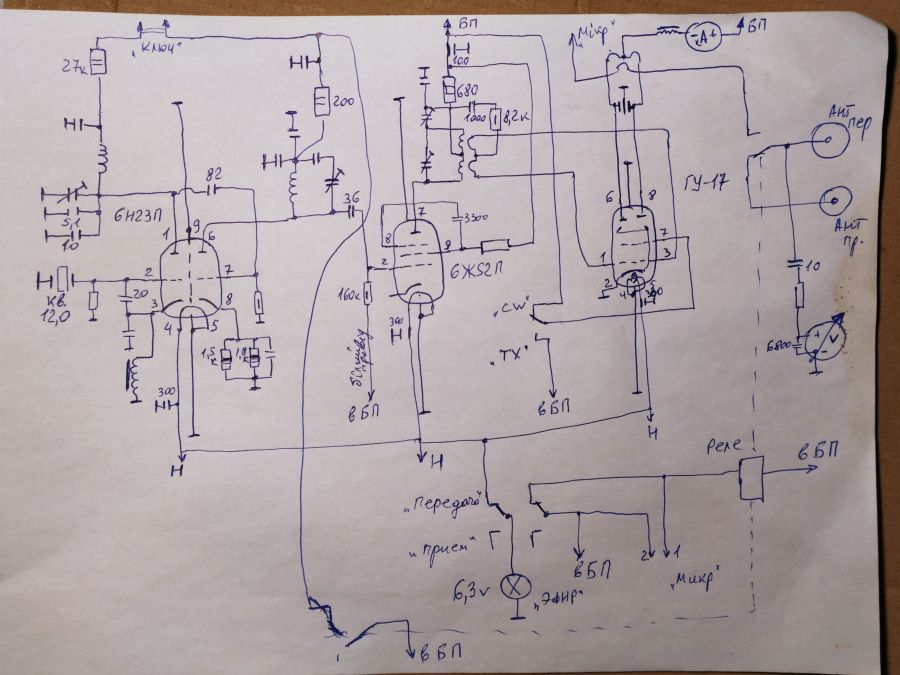 „Ключ"
ВП
„Мікр"
- A +
БП
27к
200
100
680
1000
8,2к
Ант
пер
82
36
3300
ГУ-17
6Н23П
5,1
10
1
9
6
7
8
9
6
8
Ант
пр.
кв.
12,0
2
7
20
3
8
4
5
2
6Ж52П
160к
300
1
7
3
2
4
5
300
10
1,5
к
1,8
к
300
білий
провід
„CW"
„TX"
6800
+
V
-
вБП
вБП
Н
Н
Н
Реле
вБП
„Передача"
„прием"
Г
Г
вБП
2
1
„Микр"
6,3v
„Эфир"
вБП